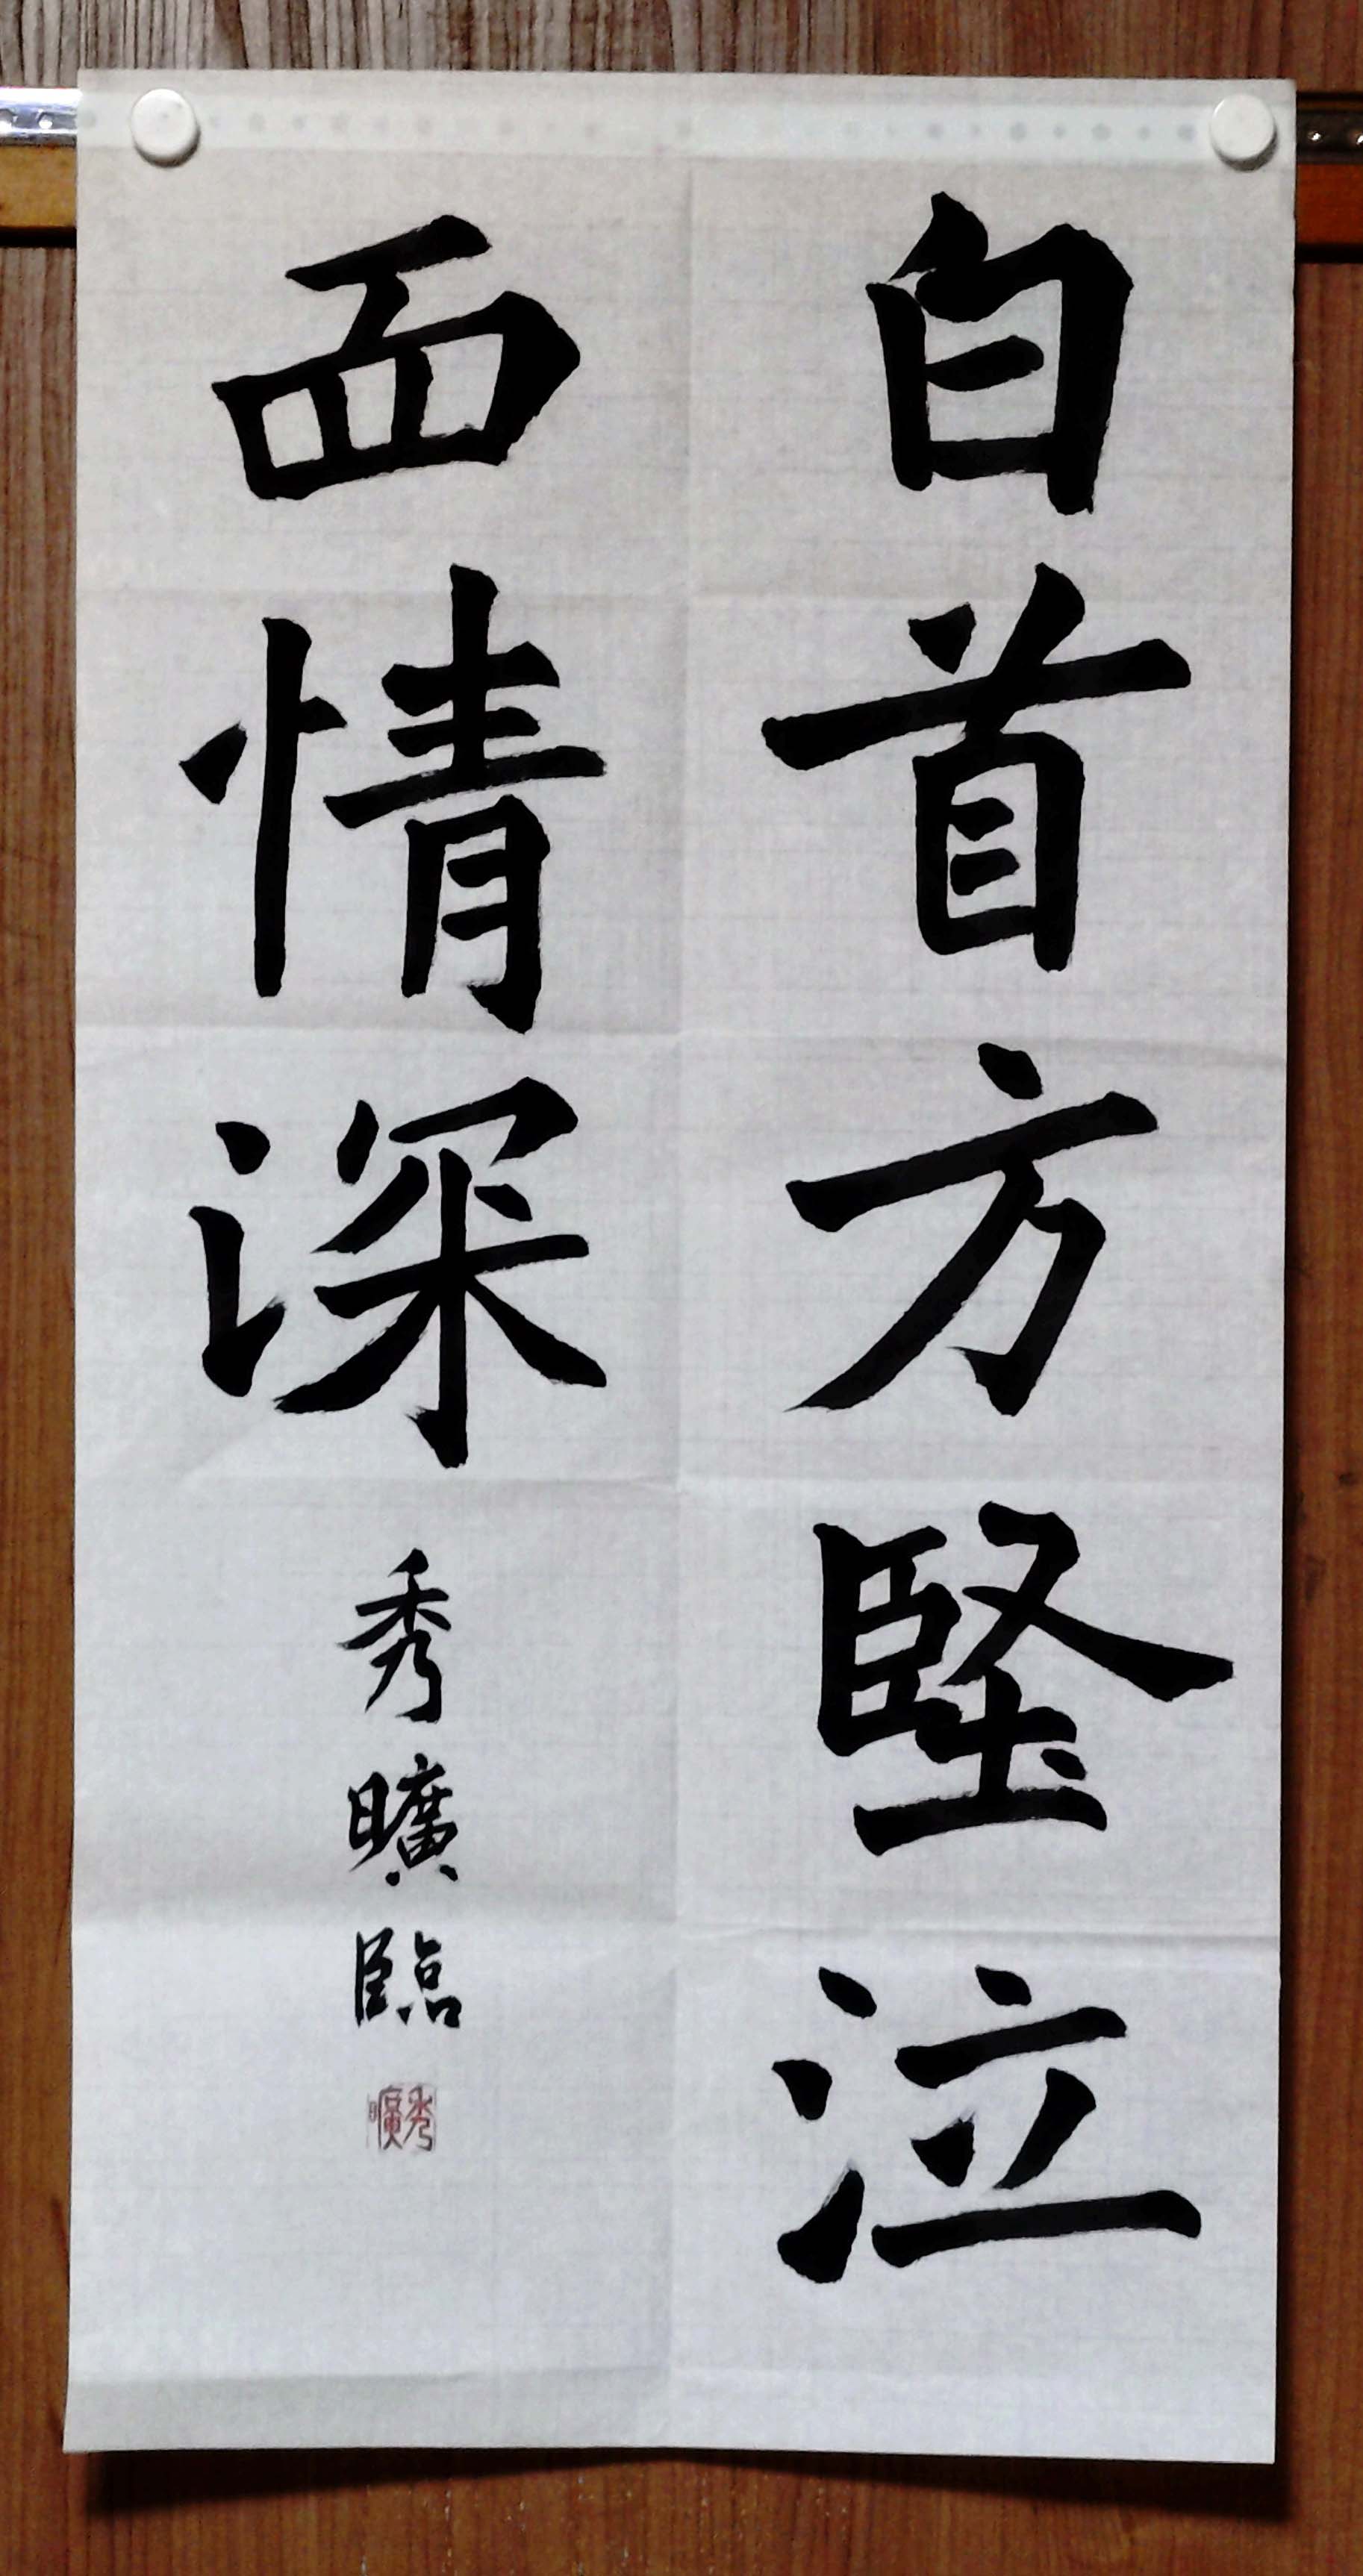 白首方堅泣
血情深
秀曠臨
秀曠